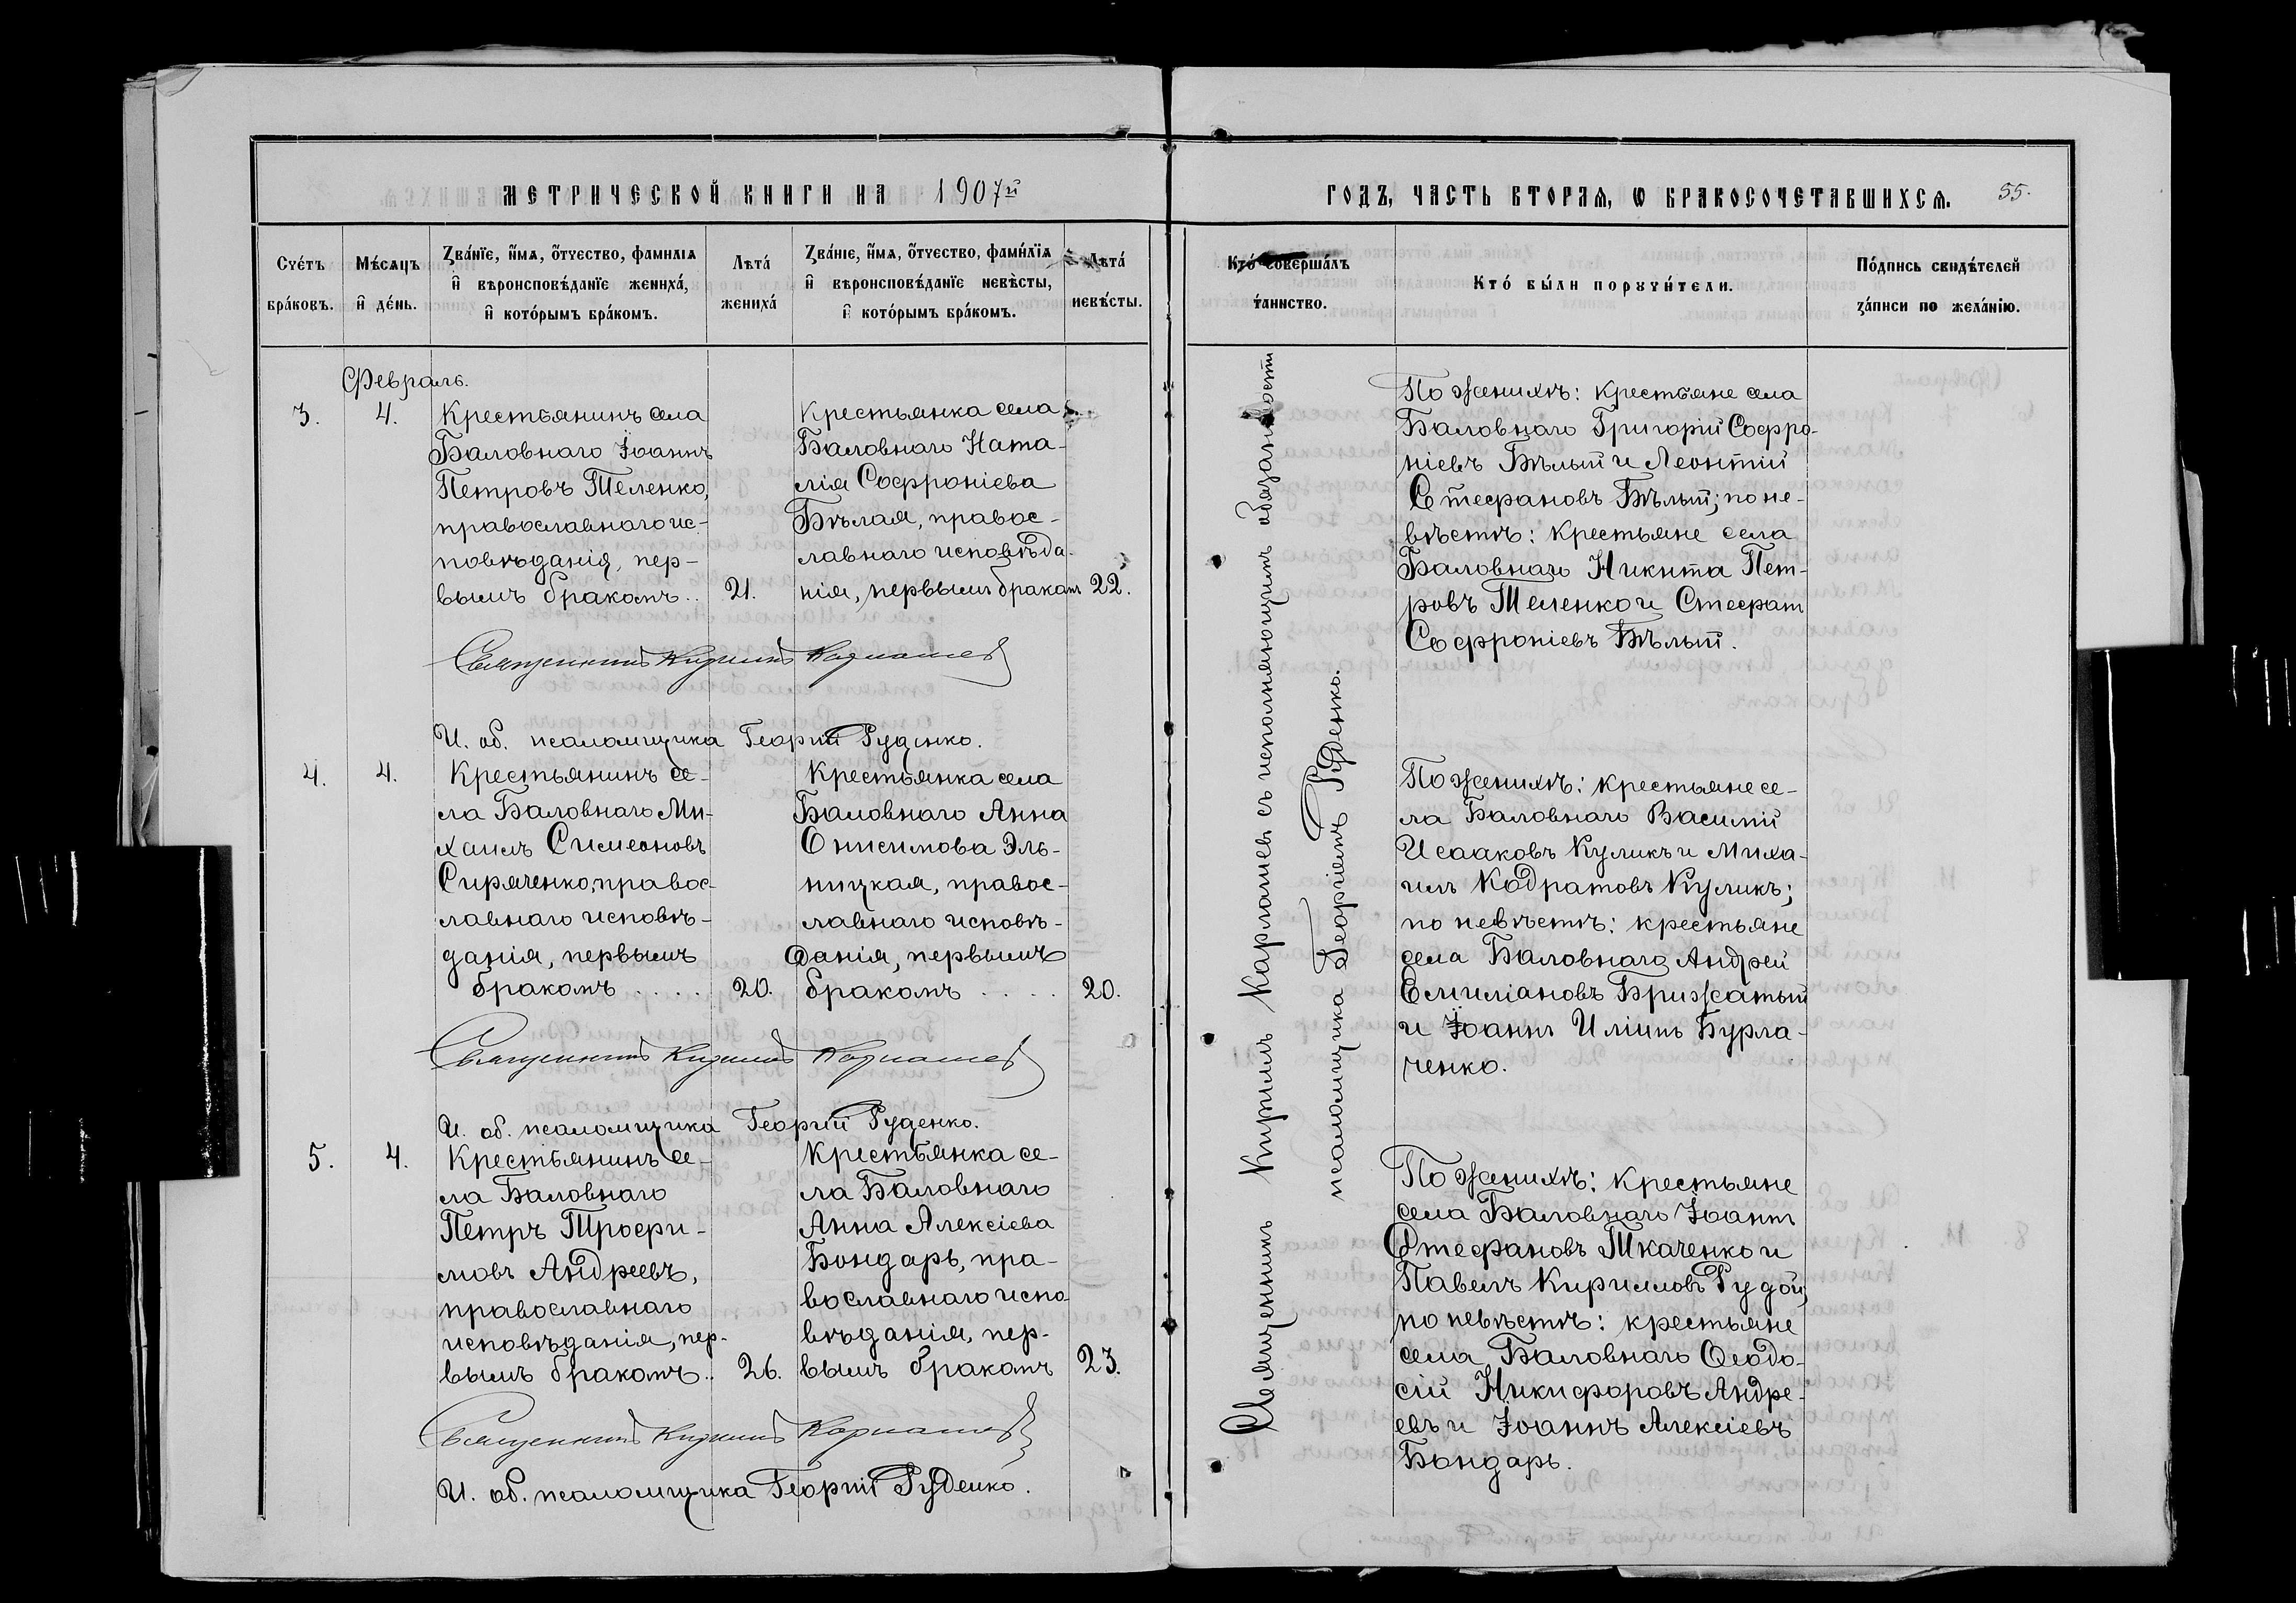 МЕТРИЧЕСКОЙ КНИГИ НА 1907й
ГОДЪ, ЧАСТЬ ВТОРАЯ, Ѡ БРАКОСОЧЕТАВШИХСЯ. 55.
Счетъ браковъ.
Мѣсяцъ и день.
Званіе, имя, отчество, фамилія
и вѣроисповѣданіе жениха,
и которымъ бракомъ.
Лѣта
жениха
Званіе, имя, отчество, фамилія
и вѣроисповѣданіе невѣсты,
и которымъ бракомъ.
Лѣта
невѣсты.
Кто совершалъ
таинство.
Кто были поручители.
Подпись свидѣтелей
записи по желанію.
Февраль.
3.
4.
Крестьянинъ села
Баловнаго Іоаннъ
Петровъ Теленко,
православнаго ис-
повѣданія, пер-
вымъ бракомъ..
21.
Крестьянка села
Баловнаго Ната-
лія Софроніева
Бѣлая, правос-
лавнаго исповѣда-
нія, первымъ бракомъ
22.
По женихѣ: крестьяне села
Баловнаго Григорій Софро-
ніевъ Бѣлый и Леонтій
Стефановъ Бѣлый; по не-
вѣстѣ: крестьяне села
Баловнаго Никита Пет-
ровъ Теленко и Стефанъ
Софроніевъ Бѣлый.
Священникъ Кириллъ Карпашев
И. об. псаломщика Георгій Руденко.
4.
4.
Крестьянинъ се-
ла Баловнаго Ми-
хаилъ Симеоновъ
Сиряченко, правос-
лавнаго исповѣ-
данія, первымъ
бракомъ .....
20.
Крестьянка села
Баловнаго Анна
Онисимова Эль-
ницкая, правос-
лавнаго исповѣ-
данія, первымъ
бракомъ ....
20.
По женихѣ: крестьяне се-
ла Баловнаго Василій
Исааковъ Куликъ и Миха-
илъ Кодратовъ Куликъ;
по невѣстѣ: крестьяне
села Баловнаго Андрей
Емиліановъ Брижатый
и Іоаннъ Иліинъ Бурла-
ченко.
Священникъ Кириллъ Карпашев
И. об. псаломщика Георгій Руденко.
5.
4.
Крестьянинъ се-
ла Баловнаго
Петръ Трофи-
мовъ Андреевъ,
православнаго
исповѣданія, пер-
вымъ бракомъ..
26.
Крестьянка се-
ла Баловнаго
Анна Алексіева
Бондарь, пра-
вославнаго испо
вѣданія, пер-
вымъ бракомъ
23.
По женихѣ: крестьяне
села Баловнаго Іоаннъ
Стефановъ Ткаченко и
Павелъ Кирилловъ Рудой;
по невѣстѣ: крестьяне
села Баловнаго Ѳеодо-
сій Никифоровъ Андре-
евъ и Іоаннъ Алексіевъ
Бондарь.
Священникъ Кириллъ Карпашев
И. об. псаломщика Георгій Руденко.
Священникъ Кириллъ Карпашевъ съ исполняющимъ обязанност
псаломщика Георгіемъ Руденко.